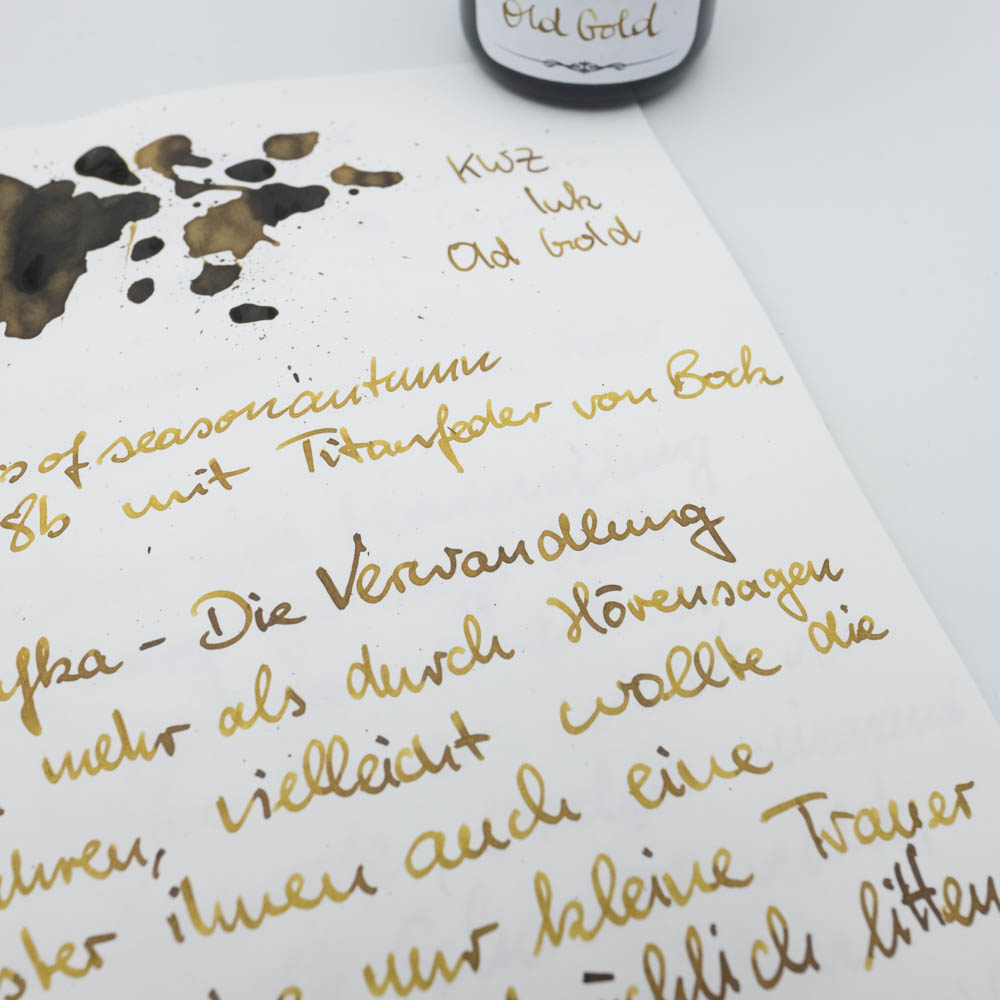 Old Gold
KWZ
Ink
Old Gold
s of seasonautumn
8b mit Titanfeder von Bock
afka - Die Verwandlung
mehr als durch Hörensagen
ahren, vielleicht wollte die
ster ihnen auch eine
nur kleine Trauer
litten